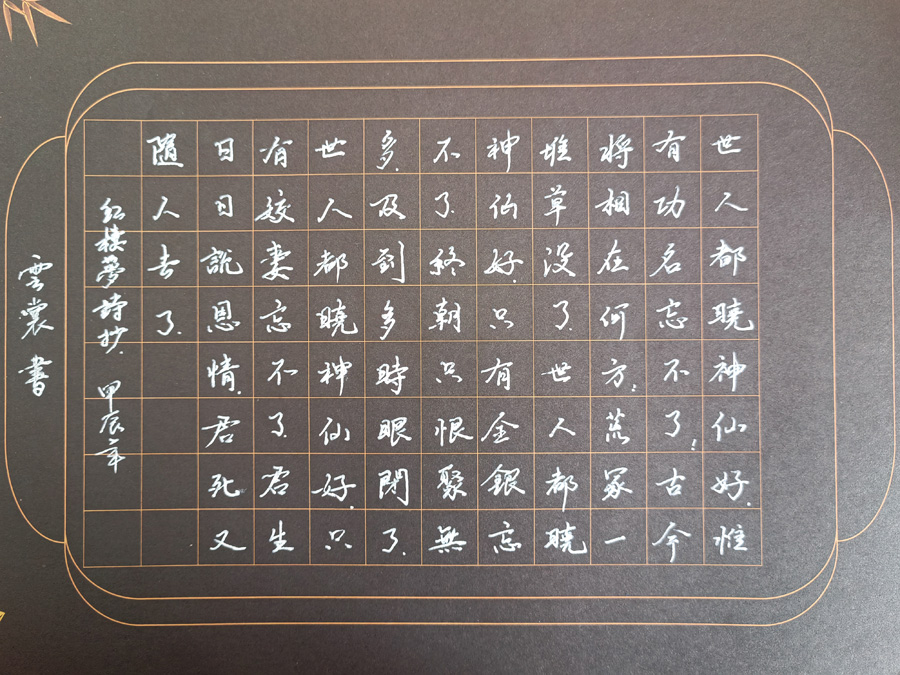 世人都曉神仙好.惟
有功名忘不了;古今
將相在何方;荒冢一
堆草沒了.世人都曉
神仙好.只有金銀忘
不了.終朝只恨聚無
多.及到多時眼閉了.
世人都曉神仙好.只
有姣妻忘不了.君生
日日說恩情.君死又
隨人去了.
紅樓夢詩抄.甲辰年
雲裳書